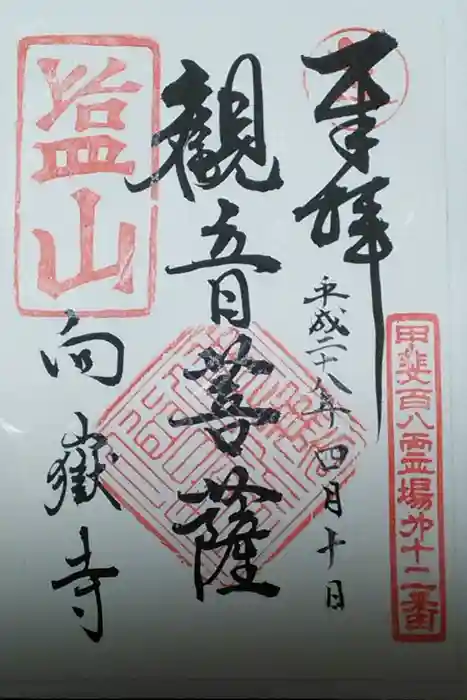 甲斐百八霊場第十二番
奉拝
平成二十八年四月十日
観音菩薩
塩山
向嶽寺